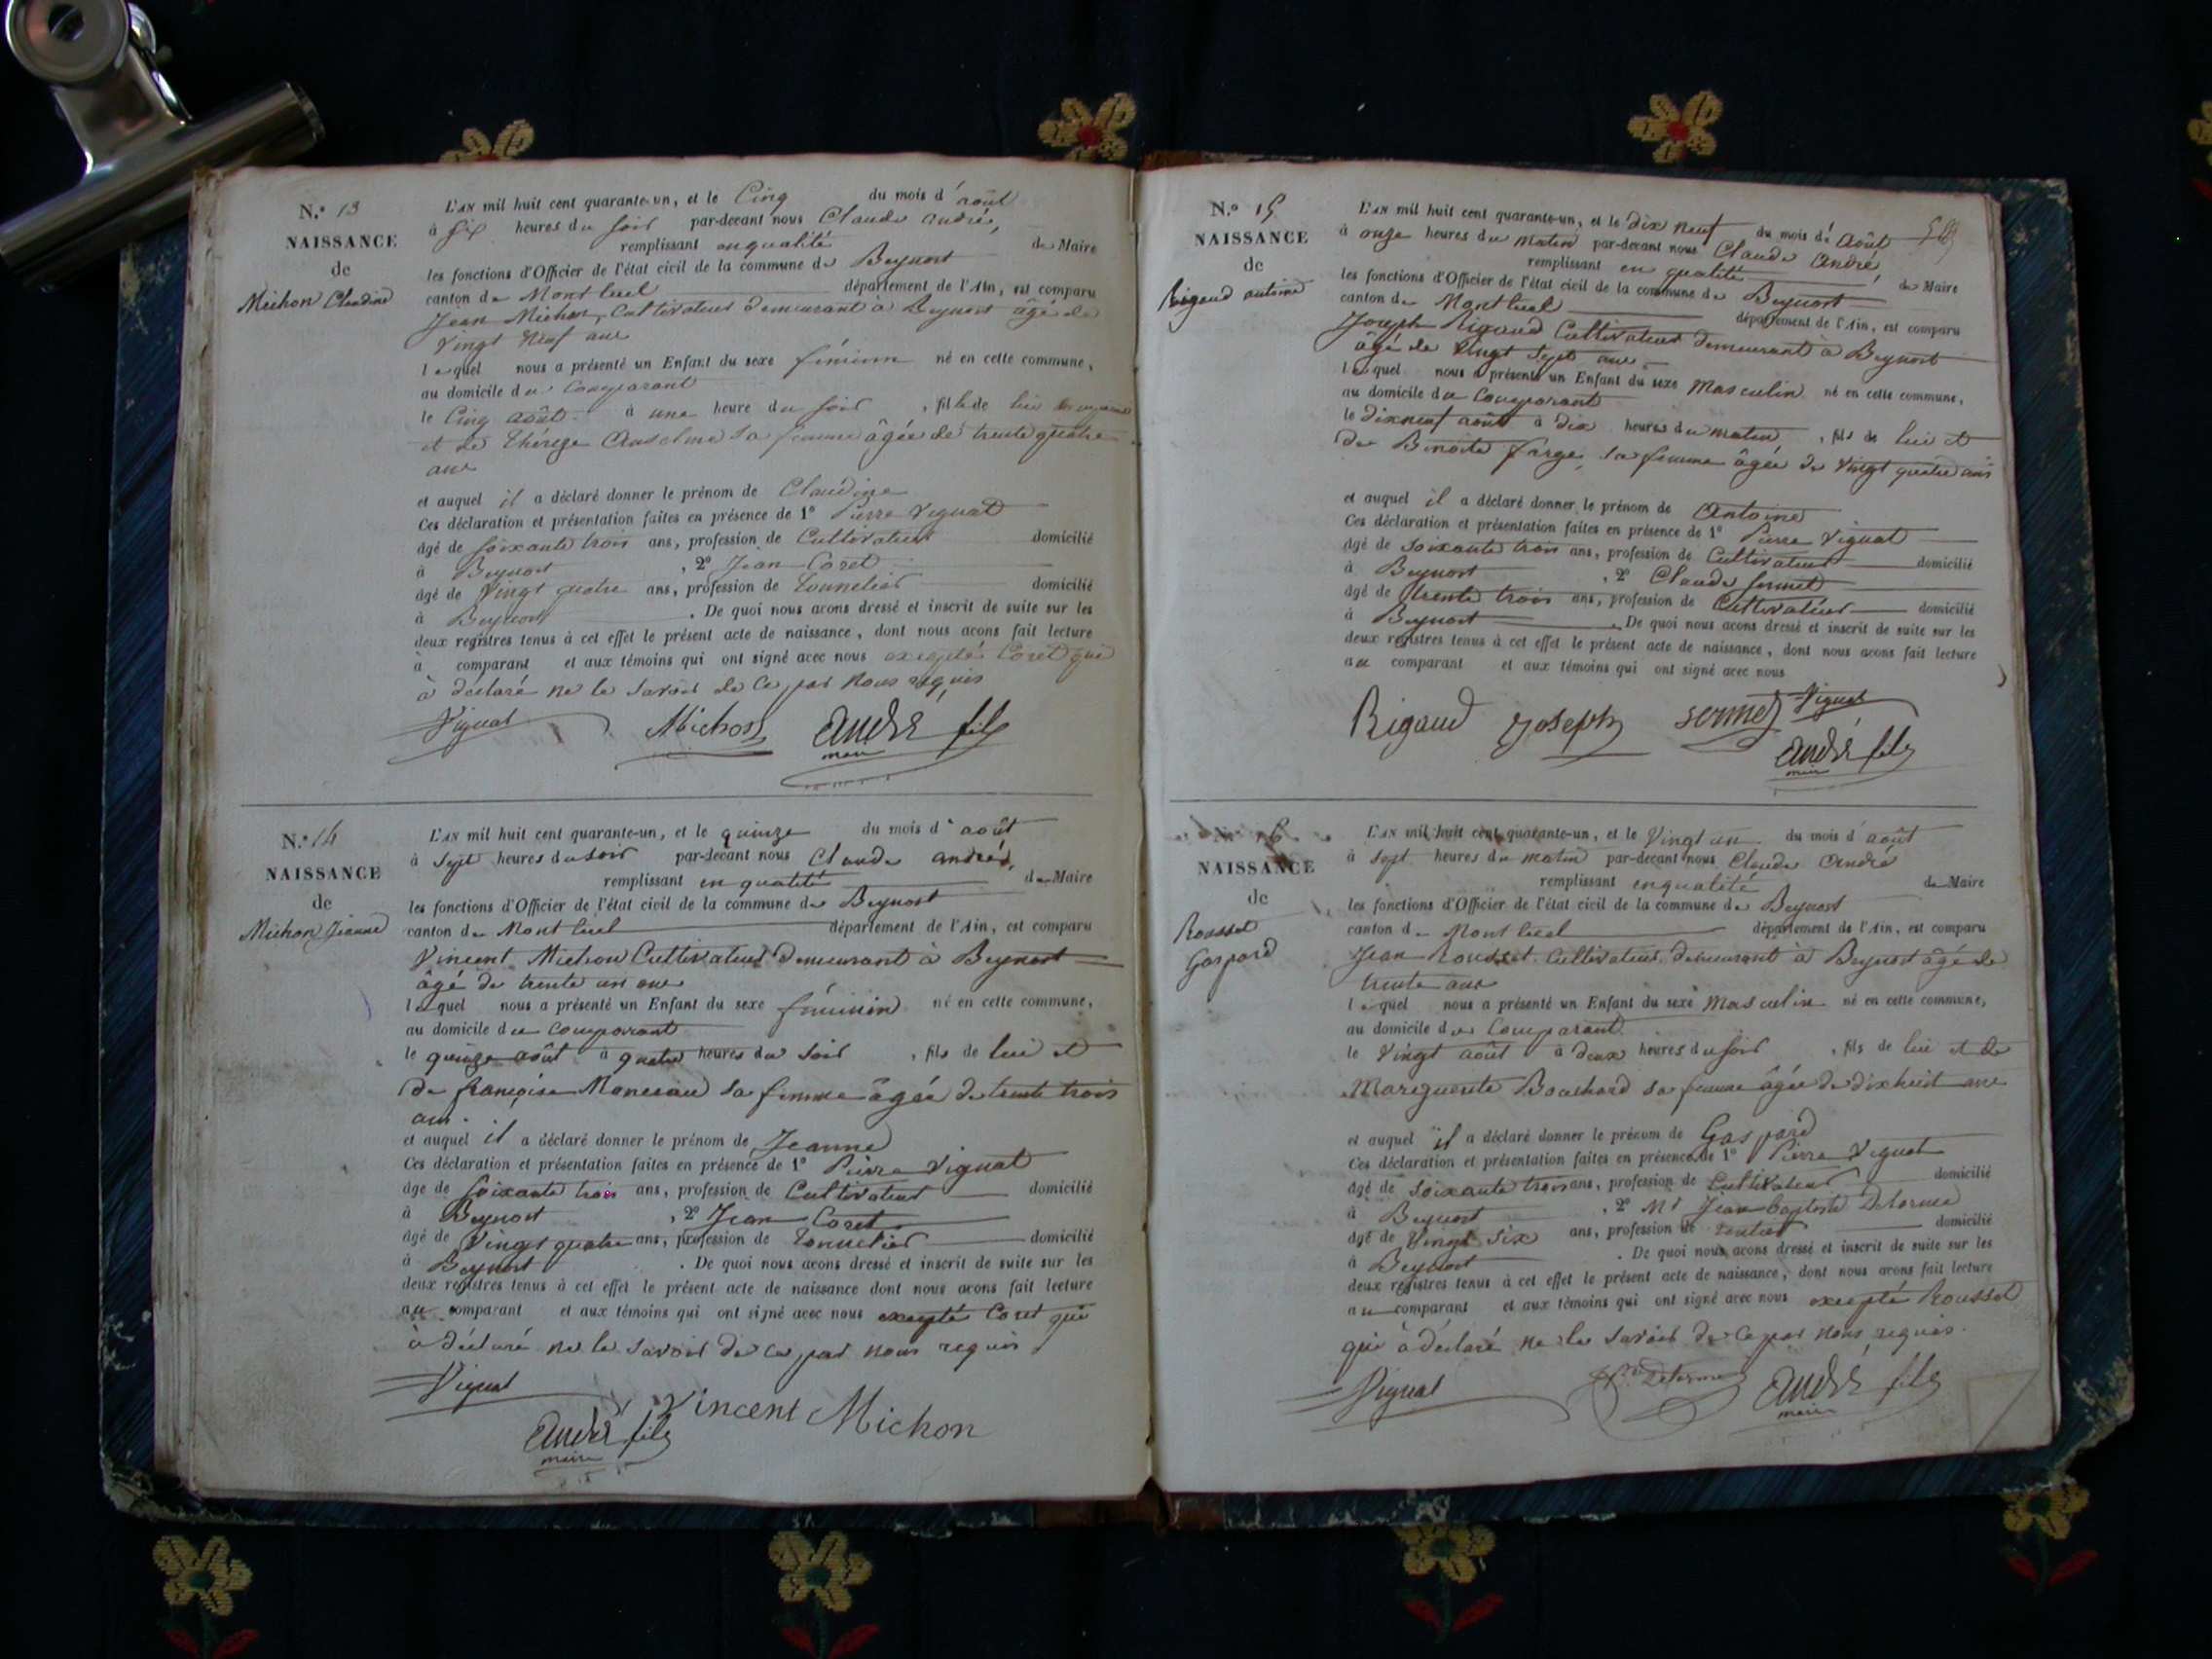 N.° 13
NAISSANCE
de
Michon Claudine
L'AN mil huit cent quarante-un, et le Cinq du mois d'août
à six heures du soir par-devant nous Claude André,
remplissant en qualité de Maire
les fonctions d'Officier de l'état civil de la commune de Beynost
canton de Montluel département de l'Ain, est comparu
Jean Michon, Cultivateur demeurant à Beynost âgé de
vingt neuf ans
lequel nous a présenté un Enfant du sexe féminin né en cette commune,
au domicile du comparant
le Cinq août à une heure du soir, fille de lui
et de Thérèze Anselme sa femme âgée de trente quatre
ans
et auquel il a déclaré donner le prénom de Claudine
Ces déclaration et présentation faites en présence de 1° Pierre Vignat
âgé de soixante trois ans, profession de Cultivateur domicilié
à Beynost, 2° Jean Coret
âgé de Vingt quatre ans, profession de Tonnelier domicilié
à Beynost. De quoi nous avons dressé et inscrit de suite sur les
deux registres tenus à cet effet le présent acte de naissance, dont nous avons fait lecture
à comparant et aux témoins qui ont signé avec nous excepté Coret qui
à déclaré ne le savoir de ce par nous requis
Vignat Michon André fils
maire
N.° 14
NAISSANCE
de
Michon Jeanne
L'AN mil huit cent quarante-un, et le quinze du mois d'août
à sept heures du soir par-devant nous Claude André,
remplissant en qualité de Maire
les fonctions d'Officier de l'état civil de la commune de Beynost
canton de Montluel département de l'Ain, est comparu
Vincent Michon Cultivateur demeurant à Beynost
âgé de trente un ans
lequel nous a présenté un Enfant du sexe féminin né en cette commune,
au domicile du comparant
le quinze août à quatre heures du soir, fils de lui et
de françoise Manceau sa femme âgée de trente trois
ans.
et auquel il a déclaré donner le prénom de Jeanne
Ces déclaration et présentation faites en présence de 1° Pierre Vignat
âgé de soixante trois ans, profession de Cultivateur domicilié
à Beynost, 2° Jean Coret
âgé de Vingt quatre ans, profession de Tonnelier domicilié
à Beynost. De quoi nous avons dressé et inscrit de suite sur les
deux registres tenus à cet effet le présent acte de naissance dont nous avons fait lecture
au comparant et aux témoins qui ont signé avec nous excepté Coret qui
à déclaré ne le savoir de ce par nous requis
Vignat Vincent Michon
André fils
maire
N.° 15
NAISSANCE
de
Rigaud antoine
L'AN mil huit cent quarante-un, et le dix neuf du mois d'Août
à onze heures du matin par-devant nous Claude André,
remplissant en qualité de Maire
les fonctions d'Officier de l'état civil de la commune de Beynost
canton de Montluel département de l'Ain, est comparu
Joseph Rigaud Cultivateur demeurant à Beynost
âgé de Vingt sept ans
lequel nous a présenté un Enfant du sexe Masculin né en cette commune,
au domicile du comparant
le dixneuf août à dix heures du matin, fils de lui et
de Benoite farge, sa femme âgée de Vingt quatre ans
et auquel il a déclaré donner le prénom de Antoine
Ces déclaration et présentation faites en présence de 1° Pierre Vignat
âgé de soixante trois ans, profession de Cultivateur domicilié
à Beynost, 2° Claude Sermet
âgé de trente trois ans, profession de Cultivateur domicilié
à Beynost. De quoi nous avons dressé et inscrit de suite sur les
deux registres tenus à cet effet le présent acte de naissance, dont nous avons fait lecture
au comparant et aux témoins qui ont signé avec nous
Rigaud Joseph Sermet Vignat
André fils
maire
N.° 16
NAISSANCE
de
Rousset
Gaspard
L'AN mil huit cent quarante-un, et le Vingt un du mois d'août
à sept heures du matin par-devant nous Claude André
remplissant en qualité de Maire
les fonctions d'Officier de l'état civil de la commune de Beynost
canton de Montluel département de l'Ain, est comparu
Jean Rousset Cultivateur demeurant à Beynost âgé de
trente ans
lequel nous a présenté un Enfant du sexe Masculin né en cette commune,
au domicile du Comparant
le Vingt août à deux heures du soir, fils de lui et de
Marguerite Bouchard sa femme âgée de dixhuit ans
et auquel il a déclaré donner le prénom de Gaspard
Ces déclaration et présentation faites en présence de 1° Pierre Vignat
âgé de soixante trois ans, profession de Cultivateur domicilié
à Beynost, 2° Mr Jean Baptiste Delorme
âgé de Vingt six ans, profession de rentier domicilié
à Beynost. De quoi nous avons dressé et inscrit de suite sur les
deux registres tenus à cet effet le présent acte de naissance, dont nous avons fait lecture
au comparant et aux témoins qui ont signé avec nous excepté Rousset
qui à déclaré ne le savoir de ce par nous requis.
Vignat Delorme André fils
maire